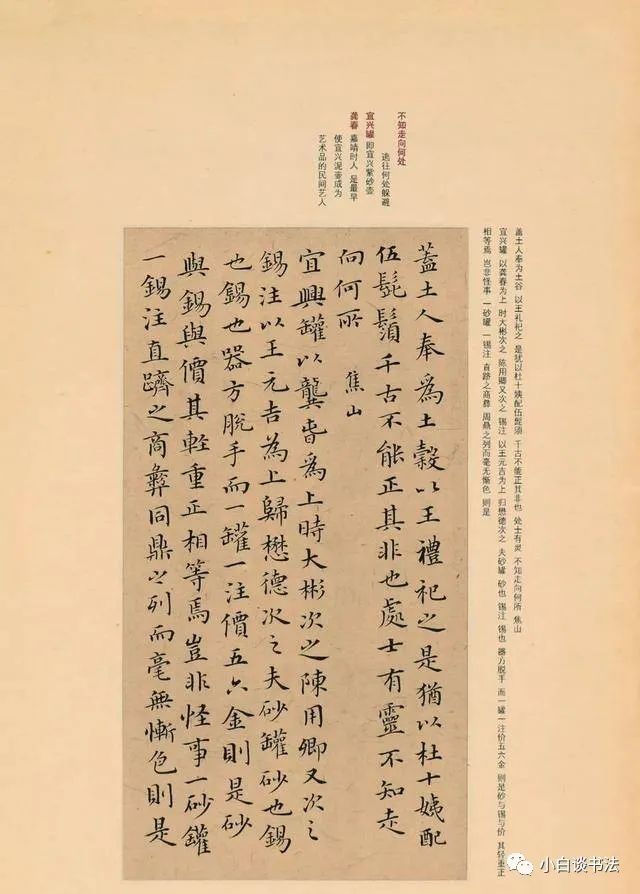 不知走向何处
逃往何处躲避
宜兴罐 即宜兴紫砂壶
龚春 嘉靖时人 是最早
使宜兴泥壶成为
艺术品的民间艺人
盖土人奉为土谷 以王礼祀之 是犹以杜十姨配伍髭须 千古不能正其非也 处士有灵 不知走向何所 焦山
宜兴罐 以龚春为上 时大彬次之 陈用卿又次之 锡注 以王元吉为上 归懋德次之 夫砂罐 砂也 锡注 锡也 器方脱手 而一罐一注价五六金 则是砂与锡与价 其轻重正
相等焉 岂非怪事 一砂罐 一锡注 直跻之商彝 周鼎之列而毫无惭色 则是
蓋土人奉為土穀以王禮祀之是猶以杜十姨配
伍髭鬚千古不能正其非也處士有靈不知走
向何所 焦山
宜興罐以龔春為上時大彬次之陳用卿又次之
錫注以王元吉為上歸懋德次之夫砂罐砂也錫
也錫也器方脫手而一罐一注價五六金則是砂
與錫與價其輕重正相等焉豈非怪事一砂罐
一錫注直躋之商彝同鼎之列而毫無慚色則是
小白谈书法